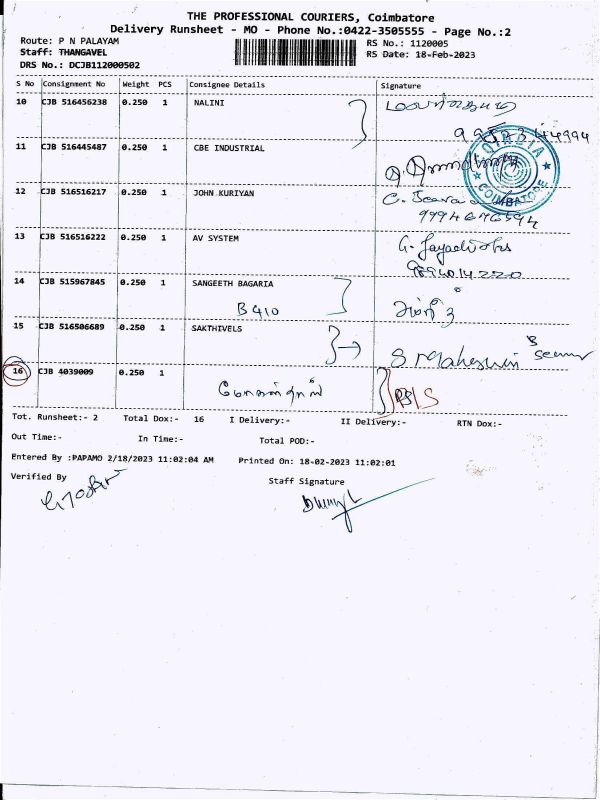 THE PROFESSIONAL COURIERS, Coimbatore
Delivery Runsheet - MO - Phone No.:0422-3505555 - Page No.:2
Route: P N PALAYAM RS No.: 1120005
Staff: THANGAVEL RS Date: 18-Feb-2023
DRS No.: DCJB112000502
S No Consignment No Weight PCS Consignee Details Signature
10 CJB 516456238 0.250 1 NALINI
11 CJB 516445487 0.250 1 CBE INDUSTRIAL
COIMBATORE
12 CJB 516516217 0.250 1 JOHN KURIYAN
9994676594
13 CJB 516516222 0.250 1 AV SYSTEM
9894014220
14 CJB 515967845 0.250 1 SANGEETH BAGARIA
B410
15 CJB 516506689 0.250 1 SAKTHIVELS
16 CJB 4039009 0.250 1
Tot. Runsheet:- 2 Total Dox:- 16 I Delivery:- II Delivery:- RTN Dox:-
Out Time:- In Time:- Total POD:-
Entered By :PAPAMO 2/18/2023 11:02:04 AM Printed On: 18-02-2023 11:02:01
Verified By Staff Signature